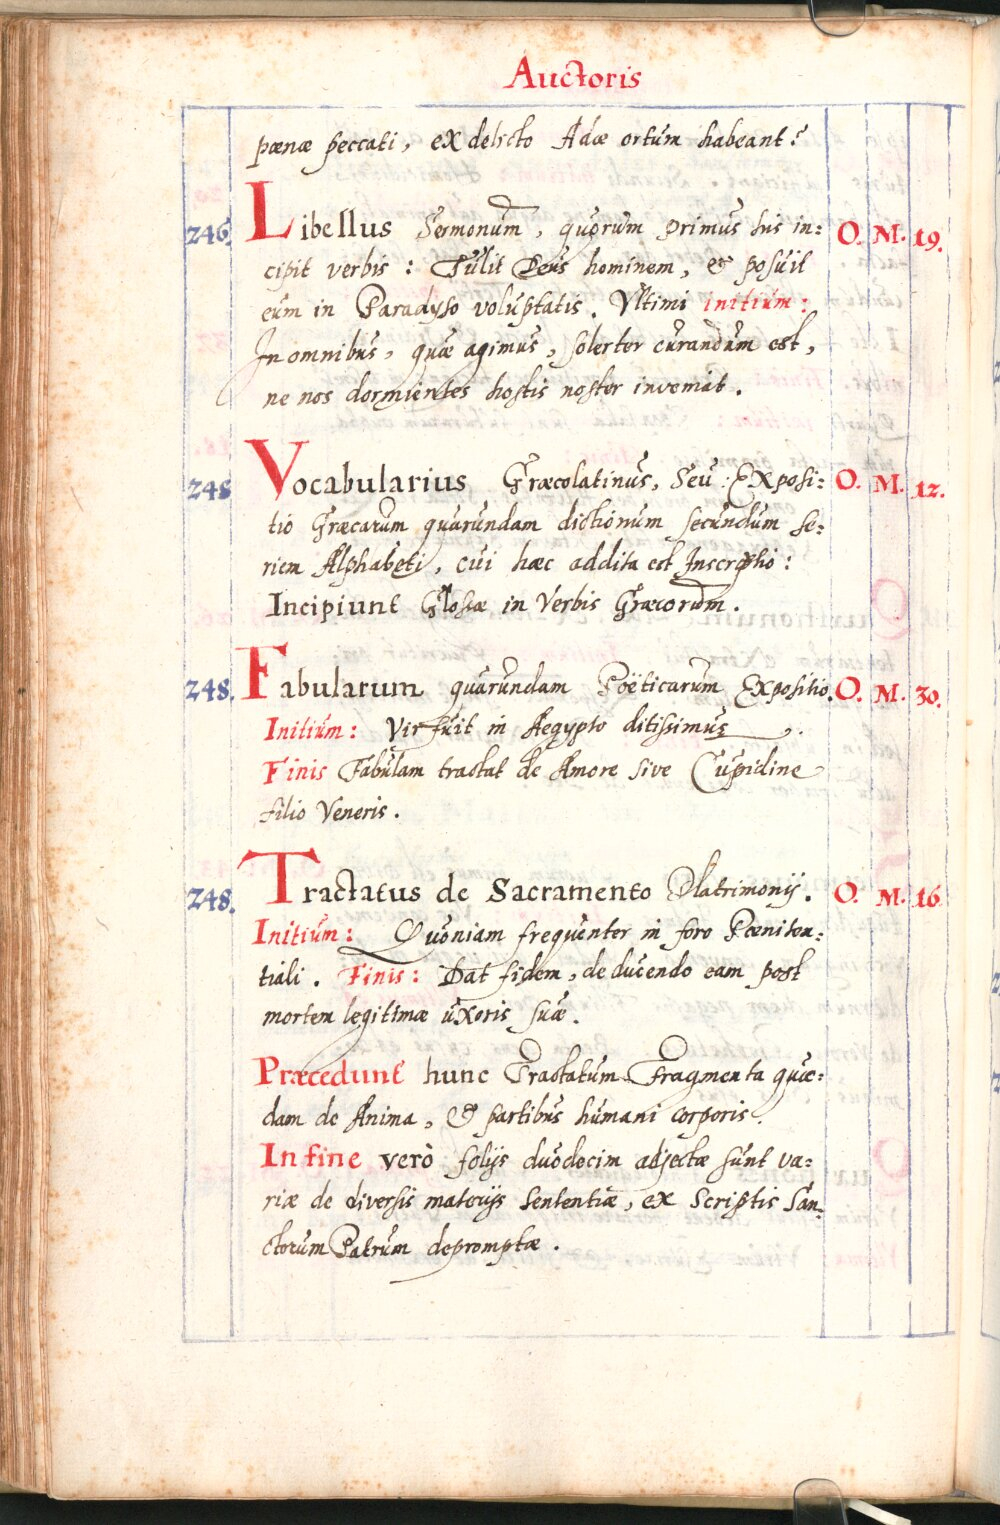 Auctoris
pœnæ peccati, ex delicto Adæ ortum habeant?
246. Libellus Sermonum, quorum primus his in: O. M. 19.
cipit verbis: Tulit Deus hominem, & posuit
eum in Paradyso voluptatis. Ultimi initium:
In omnibus, quæ agimus, solerter curandum est,
ne nos dormientes hostis noster inveniat.
248 Vocabularius Græcolatinus, Seu: Exposi: O. M. 12.
tio Græcarum quarundam dictionum secundum se:
riem Alphabeti, cui hæc addita est Inscriptio:
Incipiunt Glossæ in Verbis Græcorum.
248. Fabularum quarundam Poëticarum Expositio. O. M. 30.
Initium: Vir fuit in Aegypto ditissimus.
Finis Fabulam tractat de Amore sive Cupidine
filio Veneris.
248. Tractatus de Sacramento Matrimonij. O. M. 16
Initium: Quoniam frequenter in foro Pœniten:
tiali. Finis: Dat fidem, de ducendo eam post
mortem legitimæ uxoris suæ.
Præcedunt hunc Tractatum Fragmenta quæ:
dam de Anima, & partibus humani corporis.
In fine verò folijs duodecim adjectæ sunt va:
riæ de diversis materijs Sententiæ, ex Scriptis San:
ctorum Patrum depromptæ.